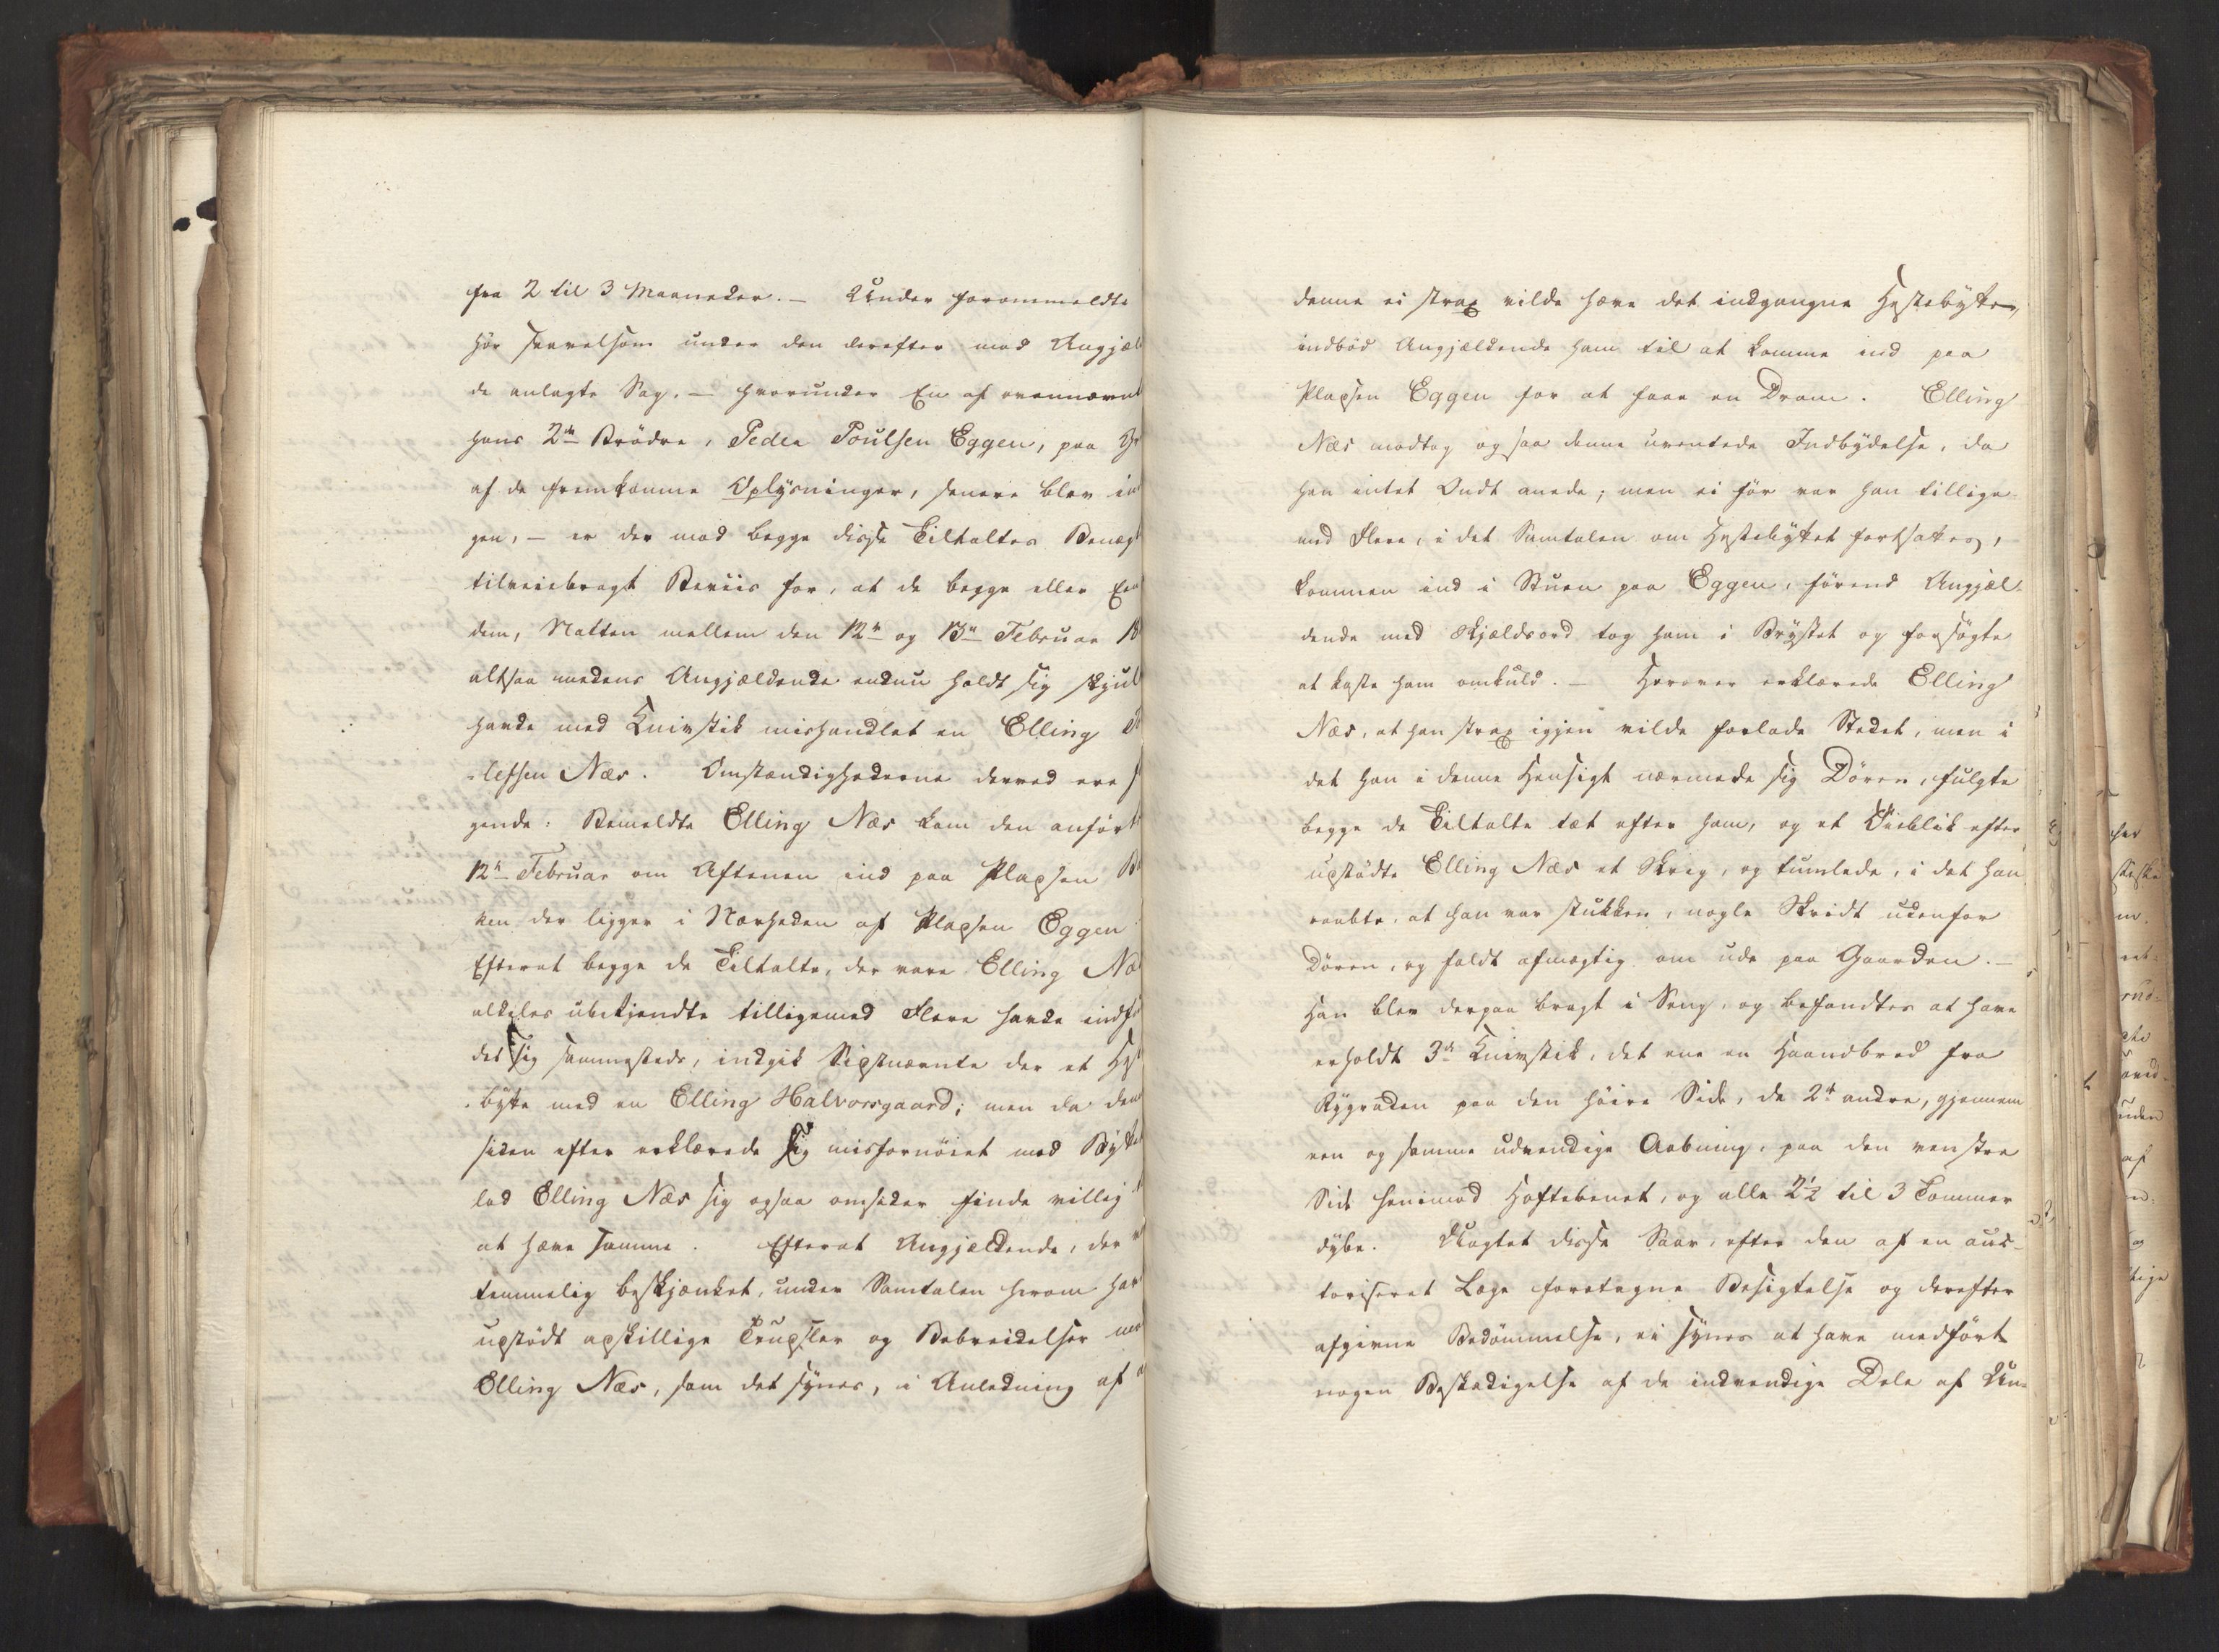 fra 2 til 3 Maaneder. — Under forommeldte
hør saavelsom under den derefter mod Angjæl
de anlagte Sag, — hvorunder En af ovennævnt
hans 2de Brødre, Peder Poulsen Eggen, paa Gr
af de fremkomne Oplysninger, senere blev in
gen, — er der mod begge disse Tiltaltes Benægt
tilveiebragt Beviis for, at de begge eller En
dem, Natten mellem den 12te og 13de Februar 18
altsaa medens Angjældende endnu holdt sig skjul
havde med Knivstik mishandlet en Elling
lefsen Næs. Omstændighederne derved ere f
gende: Bemeldte Elling Næs kom den anført
12te Februar om Aftenen ind paa Pladsen B
ken der ligger i Nærheden af Pladsen Eggen
Efterat begge de Tiltalte, der vare Elling Næ
aldeles ubekjendte tilligemed Flere havde indfu
det sig sammesteds, indgik Sidstnævnte der et Hest
bytte med en Elling Halvorsgaard; men da den
siden efter erklærede sig misfornøiet med Bytt
lod Elling Næs sig ogsaa omsider finde villig
at hæve samme. Efterat Angjældende, der
temmelig beskjænket, under Samtalen herom hav
udstødt adskillige Trudsler og Bebreidelser mo
Elling Næs, som det synes, i Anledning af
denne ei strax vilde hæve det indgangne Hestebytte,
indbød Angjældende ham til at komme ind paa
Pladsen Eggen for at faae en Dram. Elling
Næs modtog ogsaa denne uventede Indbydelse, da
han intet Ondt anede; men ei før var han tillige-
med Flere, i det Samtalen om Hestebyttet fortsattes,
kommen ind i Stuen paa Eggen, førend Angjæl-
dende med Skjældsord tog ham i Brystet og forsøgte
at kaste ham omkuld. — Herover erklærede Elling
Næs, at han strax igjen vilde forlade Stedet, men i
det han i denne Hensigt nærmede sig Døren, fulgte
begge de Tiltalte tæt efter ham, og et Öieblik efter
udstødte Elling Næs et Skrig, og tumlede, i det han
raabte, at han var stukken, nogle Skridt udenfor
Døren, og faldt afmægtig om ude paa Gaarden. —
Han blev derpaa bragt i Seng, og befandtes at have
erholdt 3de Knivstik, det ene en Haandbred fra
Rygraden paa den høire Side, de 2de andre, gjennem
een og samme udvendige Aabning, paa den venstre
Side henimod Hoftebenet, og alle 2½ til 3 Tommer
dybe. Uagtet disse Saar, efter den af en auc-
toriseret Læge foretagne Besigtelse og derefter
afgivne Bedømmelse, ei synes at have medført
nogen Beskadigelse af de indvendige Dele af Un-